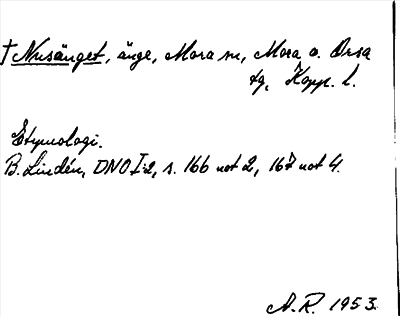 † Nusänget, änge, Mora sn, Mora o. Orsa
tg, Kopp. l.
Etymologi.
B. Lindén, DNO I:2, s. 166 not 2, 167 not 4.
A.R. 1953.